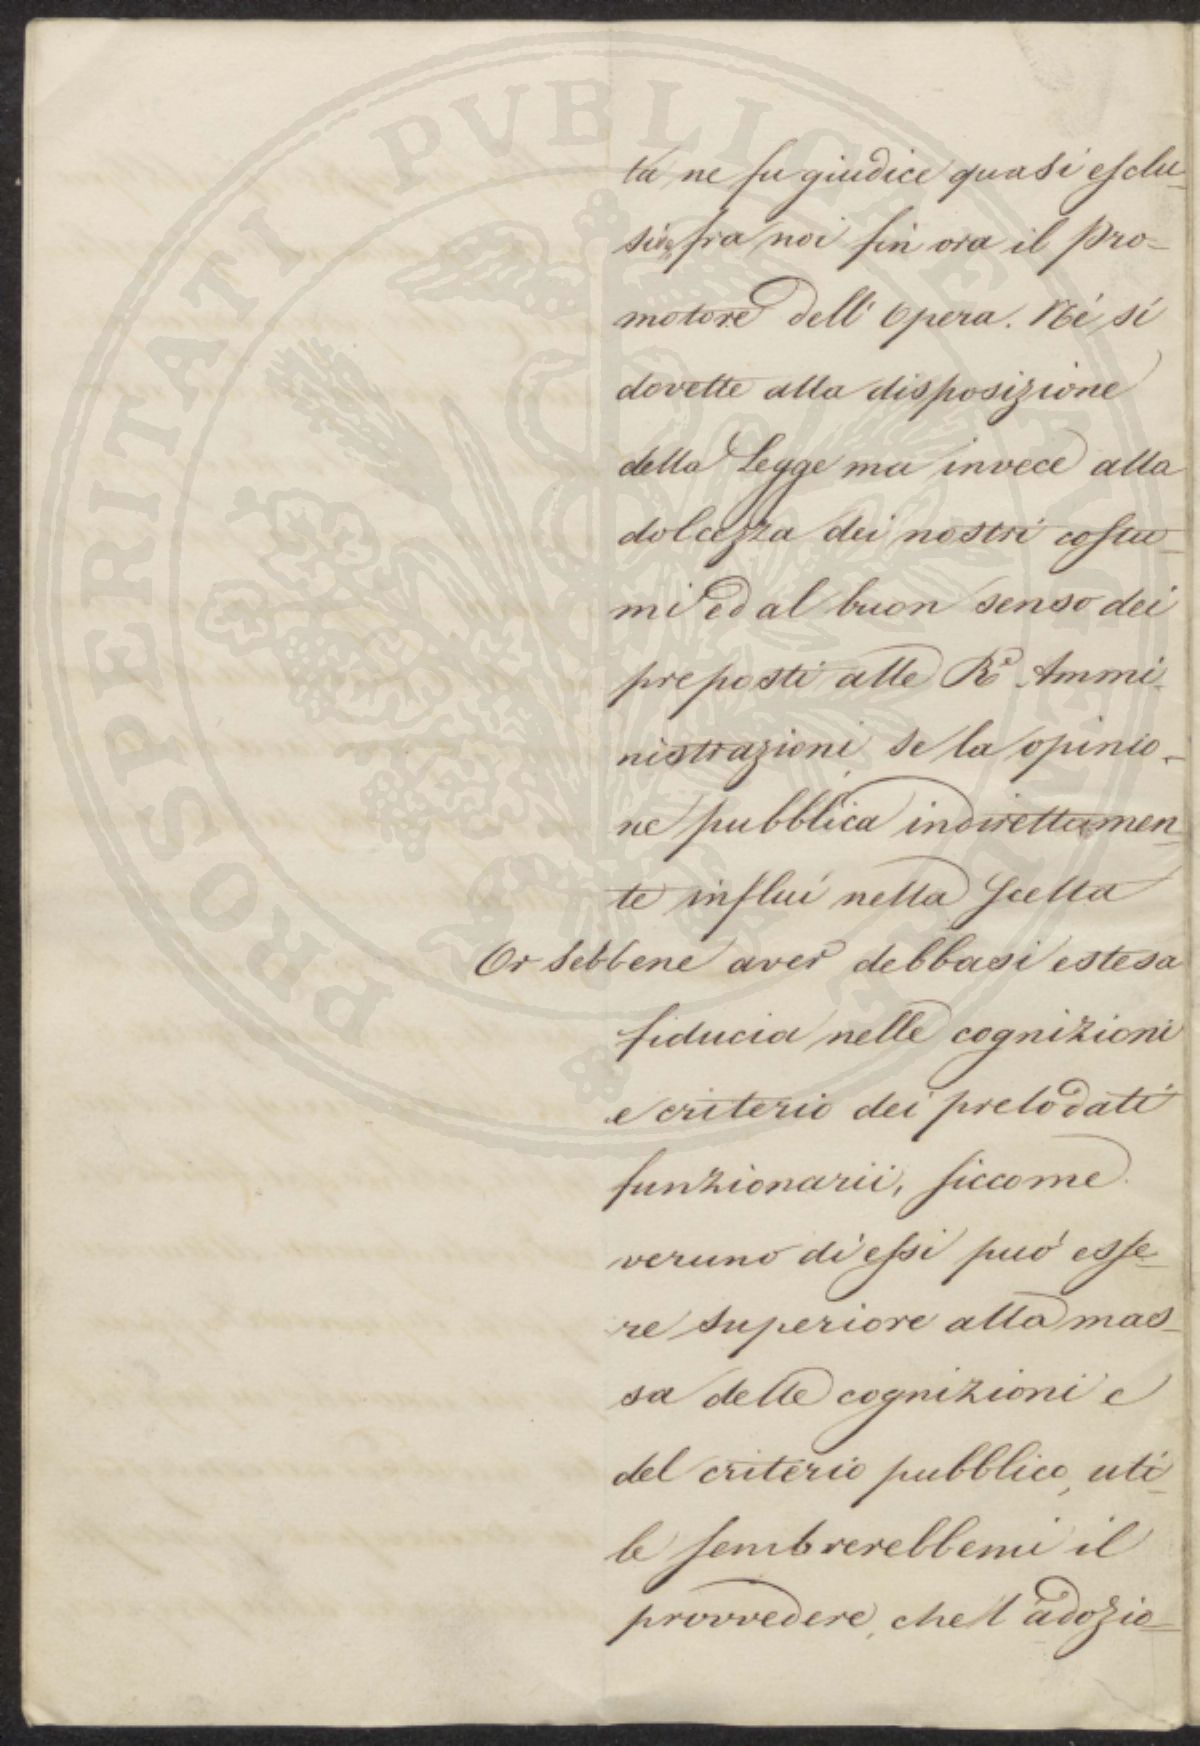 ta ne fu giudice quasi esclu-
sivo fra noi fin ora il Pro-
motore dell'Opera. Né si
dovette alla disposizione
della Legge ma invece alla
dolcezza dei nostri costu-
mi ed al buon senso dei
preposti alle Re Ammi-
nistrazioni se la opinio-
ne pubblica indirettamen-
te influì nella scelta
Or sebbene aver debbasi estesa
fiducia nelle cognizioni
e criterio dei prelodati
funzionarii, siccome
veruno di essi può esse-
re superiore alla mas-
sa delle cognizioni e
del criterio pubblico, uti-
le sembrerebbemi il
provvedere, che l'adozio-
PROSPERITATI PVBLICAE